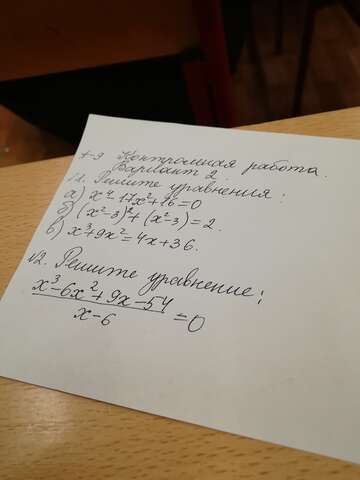 А-9 Контрольная работа.
Вариант 2.
№1. Решите уравнения:
а) x⁴-17x²+16=0
б) (x²-3)²+(x²-3)=2.
в) x³+9x²=4x+36.
№2. Решите уравнение:
x³-6x²+9x-54
x-6 =0